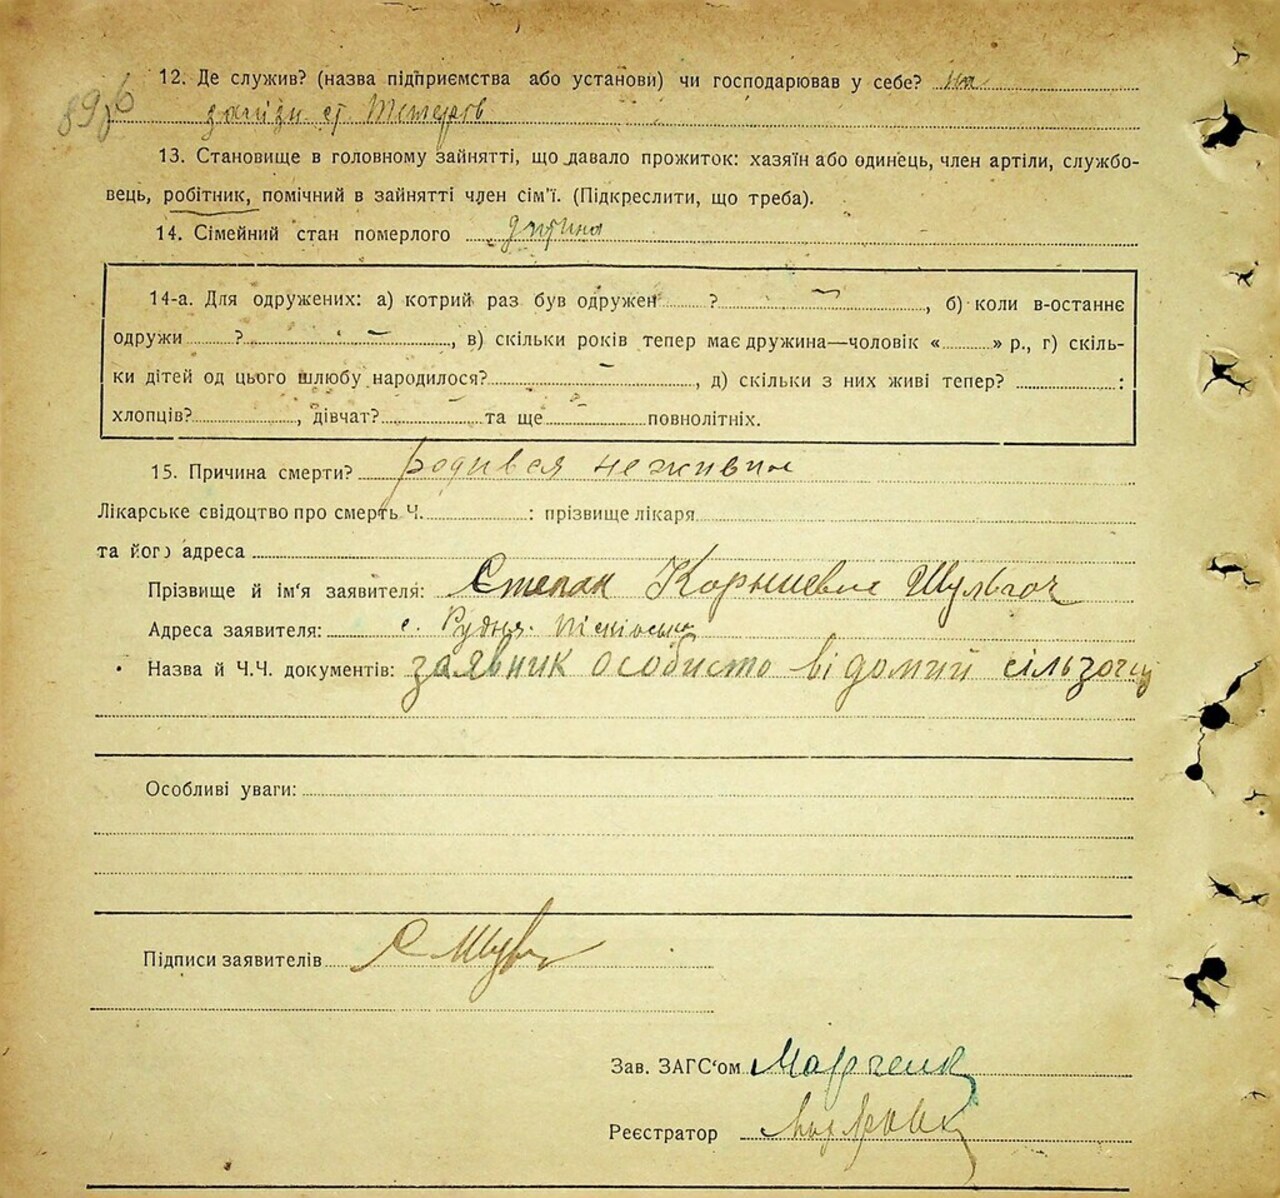 12. Де служив? (назва підприємства або установи) чи господарював у себе? на
89
ст. Тетерів
13. Становище в головному зайнятті, що давало прожиток: хазяїн або одинець, член артіли, службо-
вець, робітник, помічний в зайнятті член сім'ї. (Підкреслити, що треба).
14. Сімейний стан померлого дитина
14-а. Для одружених: а) котрий раз був одружен ? , б) коли в-останнє
одружи ? , в) скільки років тепер має дружина—чоловік « » р., г) скіль-
ки дітей од цього шлюбу народилося? , д) скільки з них живі тепер? :
хлопців? , дівчат? та ще повнолітніх.
15. Причина смерти? родився неживим
Лікарське свідоцтво про смерть Ч. : прізвище лікаря
та його адреса
Прізвище й ім'я заявителя: Степан Корниевич Шульга
Адреса заявителя: с. Рудня Пісківська
Назва й Ч.Ч. документів: заявник особисто відомий сільзагсу
Особливі уваги:
Підписи заявителів С Шул
Зав. ЗАГС'ом Марченк
Реєстратор